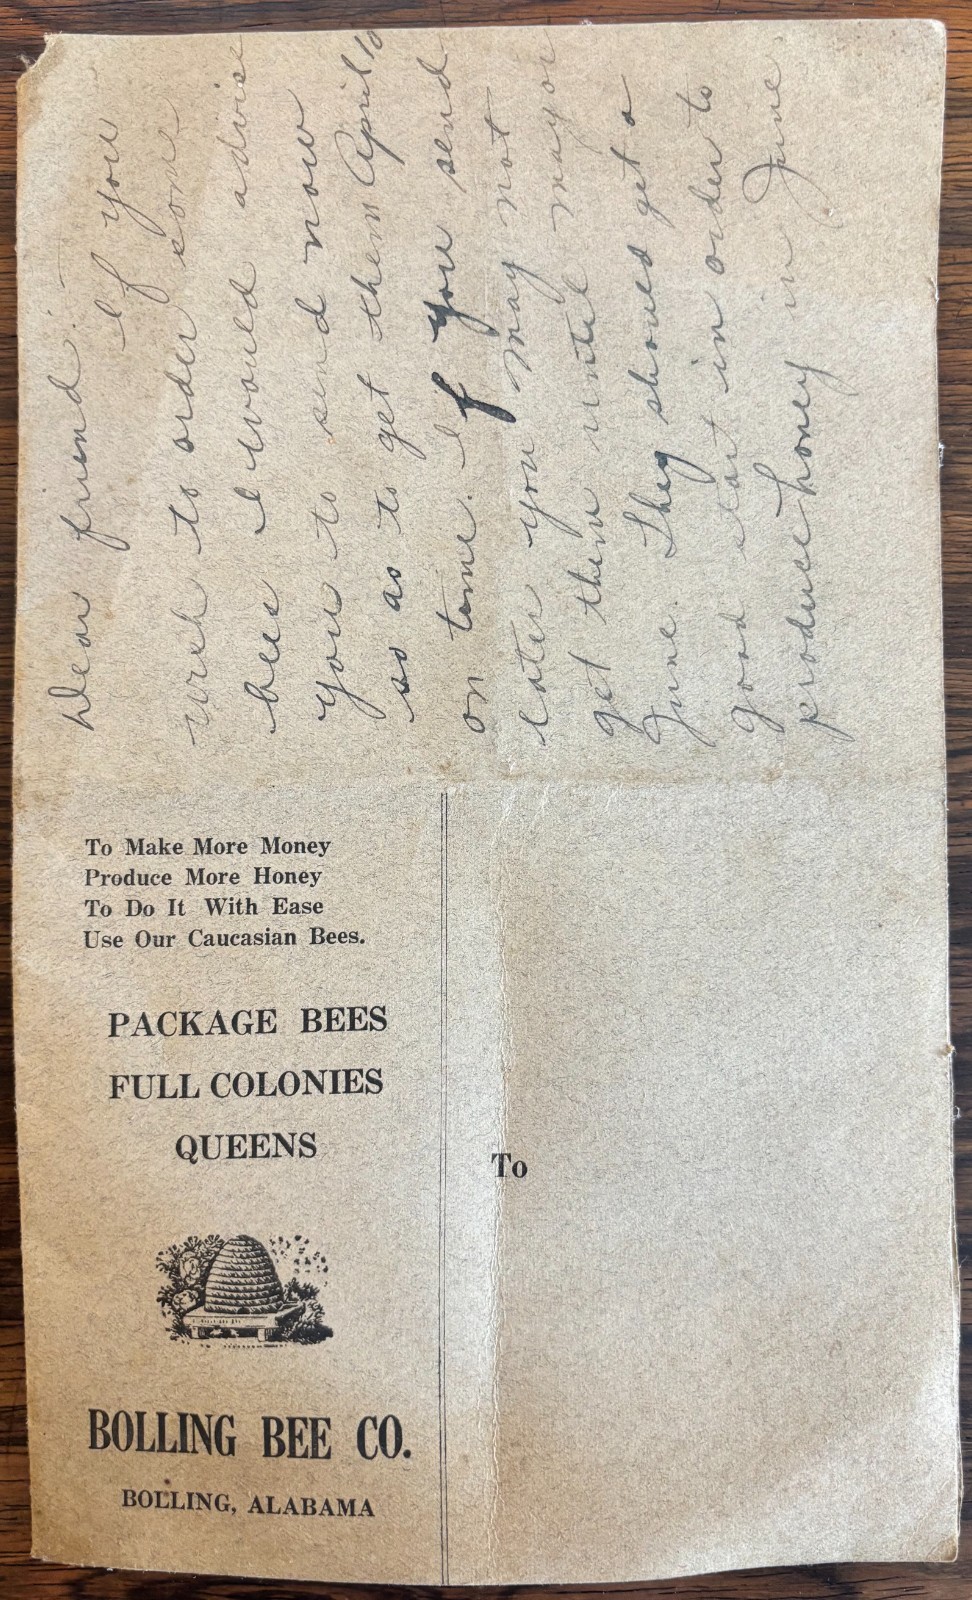 Dear friend:
If you
wish to order some
bees I would advise
you to send now
so as to get them April 10
on time. If you send
later you may not
get them until may or
June. They should get a
good start in order to
produce honey in June
To Make More Money
Produce More Honey
To Do It With Ease
Use Our Caucasian Bees.
PACKAGE BEES
FULL COLONIES
QUEENS
BOLLING BEE CO.
BOLLING, ALABAMA
To